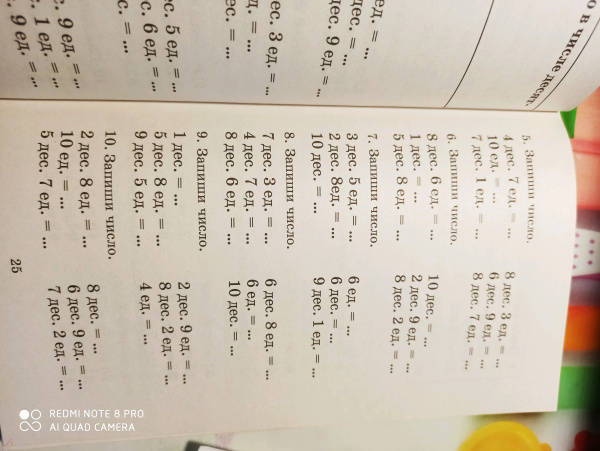 о в числе десят
ед. = ...
дес. = ...
дес. 9 ед. = ...
ед. = ...
дес. 3 ед. = ...
дес. 5 ед. = ...
дес. 6 ед. = ...
= ...
дес. 9 ед. = ...
1 ед. = ...
9 ед. = ...
5. Запиши число.
4 дес. 7 ед. = ... 8 дес. 3 ед. = ...
10 ед. = ... 6 дес. 9 ед. = ...
7 дес. 1 ед. = ... 8 дес. 7 ед. = ...
6. Запиши число.
8 дес. 6 ед. = ... 10 дес. = ...
1 дес. = ... 2 дес. 9 ед. = ...
5 дес. 8 ед. = ... 8 дес. 2 ед. = ...
7. Запиши число.
3 дес. 5 ед. = ... 6 ед. = ...
2 дес. 8ед. = ... 6 дес. = ...
10 дес. = ... 9 дес. 1 ед. = ...
8. Запиши число.
7 дес. 3 ед. = ... 6 дес. 8 ед. = ...
4 дес. 7 ед. = ... 6 ед. = ...
8 дес. 6 ед. = ... 10 дес. = ...
9. Запиши число.
1 дес. = ... 2 дес. 9 ед. = ...
5 дес. 8 ед. = ... 8 дес. 2 ед. = ...
9 дес. 5 ед. = ... 4 ед. = ...
10. Запиши число.
2 дес. 8 ед. = ... 8 дес. = ...
10 ед. = ... 6 дес. 9 ед. = ...
5 дес. 7 ед. = ... 7 дес. 2 ед. = ...
25
REDMI NOTE 8 PRO
AI QUAD CAMERA